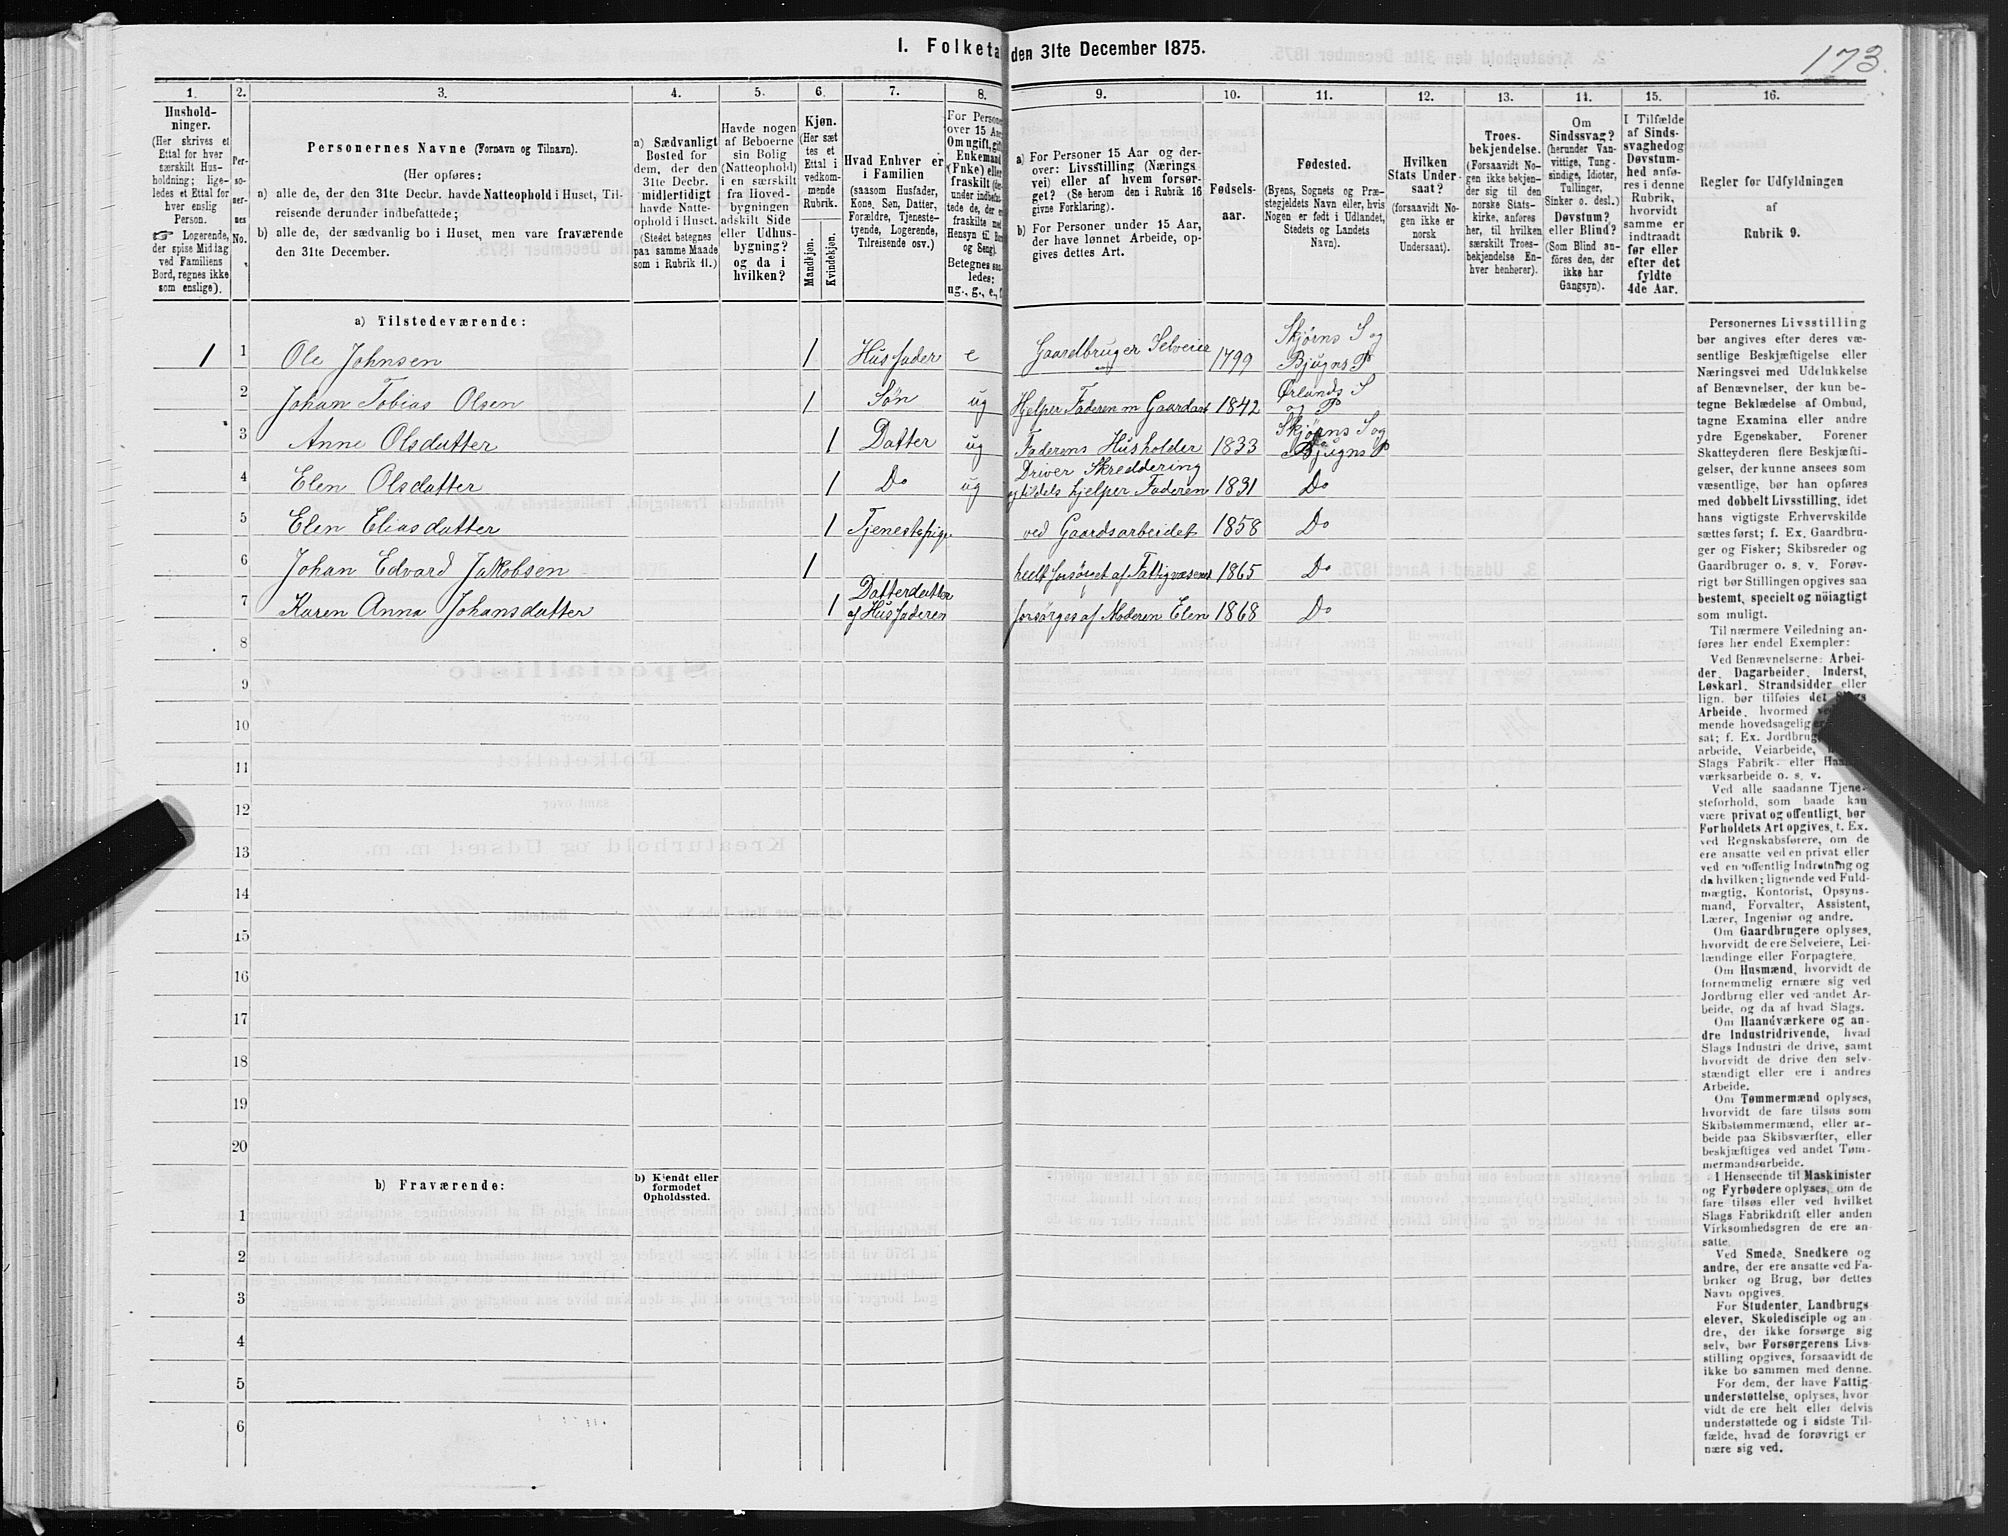 I. Folketa den 31te December 1875.
173.
1.
2.
3.
4.
5.
6.
7.
8.
9.
10.
11.
12.
13.
14.
15.
16.
Hushold-
ninger.
(Her skrives et
Ettal for hver
særskilt Hus-
holdning; lige-
ledes et Ettal for
hver enslig
Person.
☞ Logerende,
der spise Middag
ved Familiens
Bord, regnes ikke
som enslige).
Per-
so-
ner-
nes
No.
Personernes Navne (Fornavn og Tilnavn).
(Her opføres:
a) alle de, der den 31te Decbr. havde Natteophold i Huset, Til-
reisende derunder indbefattede;
b) alle de, der sædvanlig bo i Huset, men vare fraværende
den 31te December.
a) Sædvanligt
Bosted for
dem, der den
31te Decbr.
midlertidigt
havde Natte-
ophold i Huset.
(Stedet betegnes
paa samme Maade
som i Rubrik 11.)
Havde nogen
af Beboerne
sin Bolig
(Natteophold)
i en særskilt
fra Hoved-
bygningen
adskilt Side
eller Udhus-
bygning?
og da i
hvilken?
Kjøn.
(Her sæt
tes et
Ettal i
vedkom-
mende
Rubrik.
Mandkjøn.
Kvindekjøn.
Hvad Enhver er
i Familien
(saasom Husfader,
Kone, Søn, Datter,
Forældre, Tjeneste-
tyende, Logerende,
Tilreisende osv.)
For Persone
over 15 Aa
Om ugift, gift
Enkemand
(Enke) eller
fraskilt
under indbefat-
tede de, der e
fraskilte med
Hensyn til Bor
og Seng).
Betegnes saa
ledes:
ug., g., e., f
a) For Personer 15 Aar og der-
over: Livsstilling (Nærings
vei) eller af hvem forsør-
get? (Se herom den i Rubrik 16
givne Forklaring).
b) For Personer under 15 Aar,
der have lønnet Arbeide, op-
gives dettes Art.
Fødsels-
aar.
Fødested.
(Byens, Sognets og Præ-
stegjeldets Navn eller, hvis
Nogen er født i Udlandet,
Stedets og Landets
Navn).
Hvilken
Stats Under-
saat?
(forsaavidt No-
gen ikke er
norsk
Undersaat).
Troes-
bekjendelse.
(Forsaavidt No-
gen ikke bekjen-
der sig til den
norske Stats-
kirke, anføres
her, til hvilken
særskilt Troes-
bekjendelse En-
hver henhører).
Om
Sindssvag?
(herunder Van-
vittige, Tung-
sindige, Idioter,
Tullinger,
Sinker o. desl.)
Døvstum?
eller Blind?
(Som Blind an-
føres den, der
ikke har
Gangsyn).
I Tilfælde
af Sinds-
svaghed og
Døvstum-
hed anfø-
res i denne
Rubrik,
hvorvidt
samme er
indtraadt
før eller
efter det
fyldte
4de Aar.
Regler for Udfyldningen
af
Rubrik 9.
a) Tilstedeværende:
1 1 Ole Johnsen 1 Husfader e Gaardbruger Selveier 1799 Skjørns S og Bjugns P
2 Johan Tobias Olsen 1 Søn ug Hjelper Faderen m Gaardar 1842 Ørlands S og P
3 Anne Olsdatter 1 Datter ug Faderens Husholder 1833 Skjørns S og Bjugns P
4 Elen Olsdatter 1 Do ug Driver Skreddering og tildels hjelper Faderen 1831 Do
5 Elen Eliasdatter 1 Tjenestepige ved Gaardsarbeidet 1858 Do
6 Johan Edvard Jakobsen 1 heelt forsørget af Fattigvæsenet 1865 Do
7 Karen Anna Johansdatter 1 Datterdatter af Husfaderen forsørges af Moderen Elen 1868 Do
8
9
10
11
12
13
14
15
16
17
18
19
20
b) Fraværende:
b) Kjendt eller
formodet
Opholdssted.
1
2
3
4
5
6
Personernes Livsstilling
bør angives efter deres væ-
sentlige Beskjæftigelse eller
Næringsvei med Udelukkelse
af Benævnelser, der kun be-
tegne Beklædelse af Ombud,
tagne Examina eller andre
ydre Egenskaber. Forener
Skatteyderen flere Beskjæfti-
gelser, der kunne ansees som
væsentlige, bør han opføres
med dobbelt Livsstilling, idet
hans vigtigste Erhvervskilde
sættes først; f. Ex. Gaardbru-
ger og Fisker; Skibsreder og
Gaardbruger o. s. v. Forøv-
rigt bør Stillingen opgives saa
bestemt, specielt og nöiagtigt
som muligt.
Til nærmere Veiledning an-
føres her endel Exempler:
Ved Benævnelserne: Arbei-
der, Dagarbeider, Inderst,
Løskarl, Strandsidder eller
lign. bør tilføies det Slags
Arbeide, hvormed
mende hovedsagelig
sat; f. Ex. Jordbrug
arbeide, Veiarbeide,
Slags Fabrik- eller Haand-
værksarbeide o. s. v.
Ved alle saadanne Tjene-
steforhold, som baade kan
være privat og offentligt, bør
Forholdets Art opgives, t. Ex.
ved Regnskabsførere, om de
ere ansatte ved en privat eller
ved en offentlig Indretning og
da hvilken; lignende ved Fuld-
mægtig, Kontorist, Opsyns-
mand, Forvalter, Assistent,
Lærer, Ingeniør og andre.
Om Gaardbrugere oplyses,
hvorvidt de ere Selveiere, Lei-
lændinge eller Forpagtere.
Om Husmænd, hvorvidt de
fornemmelig ernære sig ved
Jordbrug eller ved andet Ar-
beide, og da af hvad Slags.
Om Haandværkere og an-
dre Industridrivende, hvad
Slags Industri de drive, samt
hvorvidt de drive den selv-
stændigt eller ere i andres
Arbeide.
Om Tømmermænd oplyses,
hvorvidt de fare tilsøs som
Skibstømmermænd, eller ar-
beide paa Skibsværfter, eller
beskjæftiges ved andet Tøm-
mermandsarbeide.
I Henseende til Maskinister
og Fyrbødere oplyses, om de
fare tilsøs eller ved hvilket
Slags Fabrikdrift eller anden
Virksomhedsgren de ere an-
satte.
Ved Smede, Snedkere og
andre, der ere ansatte ved Fa-
briker og Brug, bør dettes
Navn opgives.
For Studenter, Landbrugs-
elever, Skoledisciple og an-
dre, der ikke forsørge sig
selv, bør Forsørgerens Livs-
stilling opgives, forsaavidt de
ikke bo sammen med denne.
For dem, der have Fattig-
understøttelse, oplyses, hvor-
vidt de ere helt eller delvis
understøttede og i sidste Til-
fælde, hvad de forøvrigt er
nære sig ved.